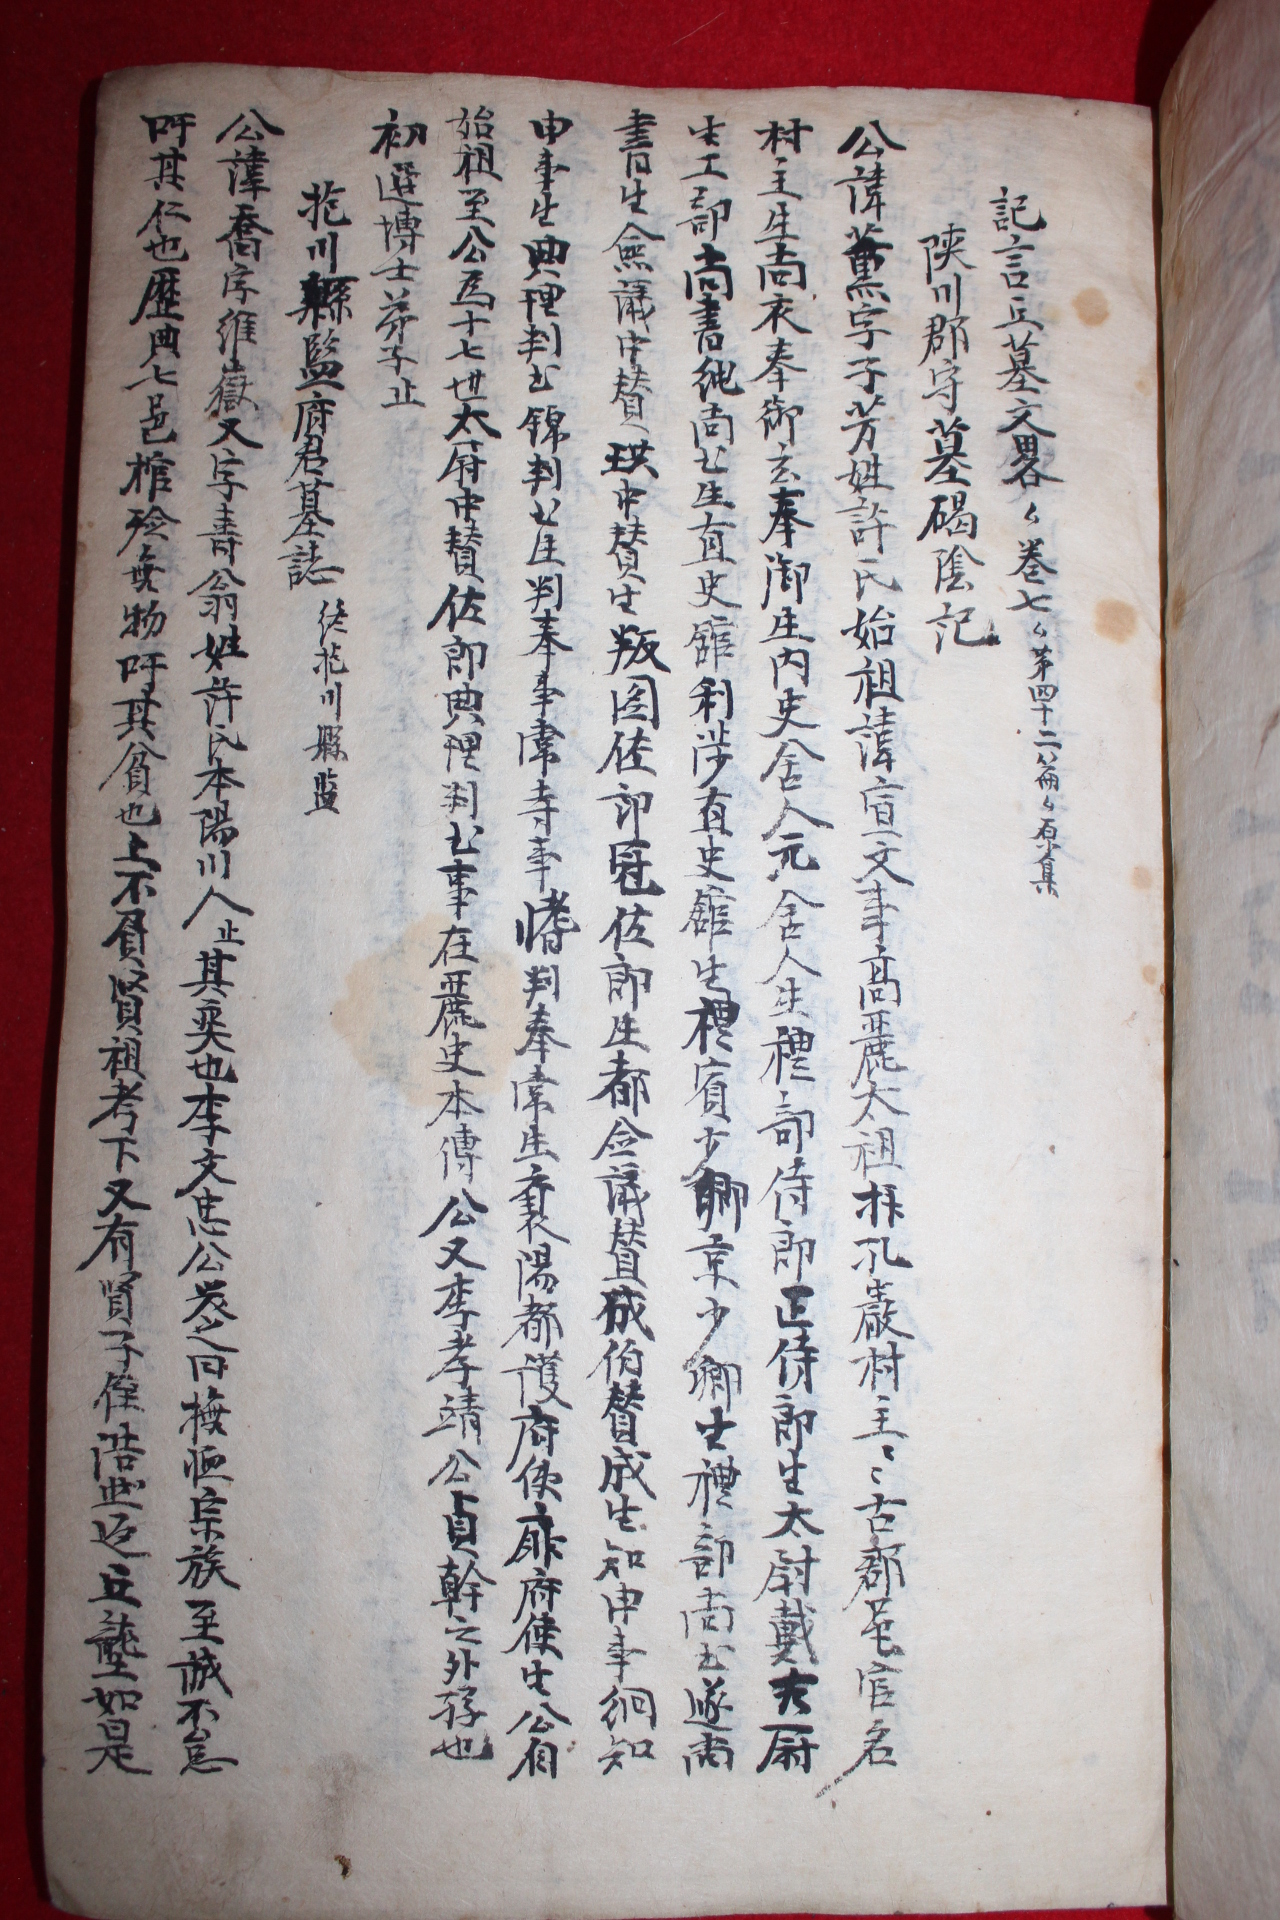 記言丘墓文畧々卷七々第四十二篇々原集
陜川郡守墓碣陰記
公諱薰字子芳姓許氏始祖諱宣文事高麗太祖拜孔巖村主〻古郡邑官名
村主生尚衣奉御玄奉御生内史舍人元舍人生禮部侍郎正侍郎生太尉載太尉
生工部尚書純尚书生直史舘利涉直史舘生禮賓少卿京少卿生禮部尚书遂尚
書生僉議中贊珙中贊生版图佐郎冠佐郎生都僉議贊成伯贊成生知申事絅知
申事生典理判书錦判书生判奉事常寺事愭判奉常生襄陽都護府使扉府使生公自
始祖至公爲十七世太尉中贊佐郎典理判书事在麗史本傳公又李孝靖公貞幹之外孫也
初選博士弟子止
抱川縣監府君墓誌 終抱川縣監
公諱喬字維嶽又字壽翁姓許氏本陽川人止其奭也李文忠公誄之曰撫恤宗族至誠不怠
吁其仁也歷典七邑棺殮無物吁其貧也上不負賢祖考下又有賢子侄浩然返丘壟如是